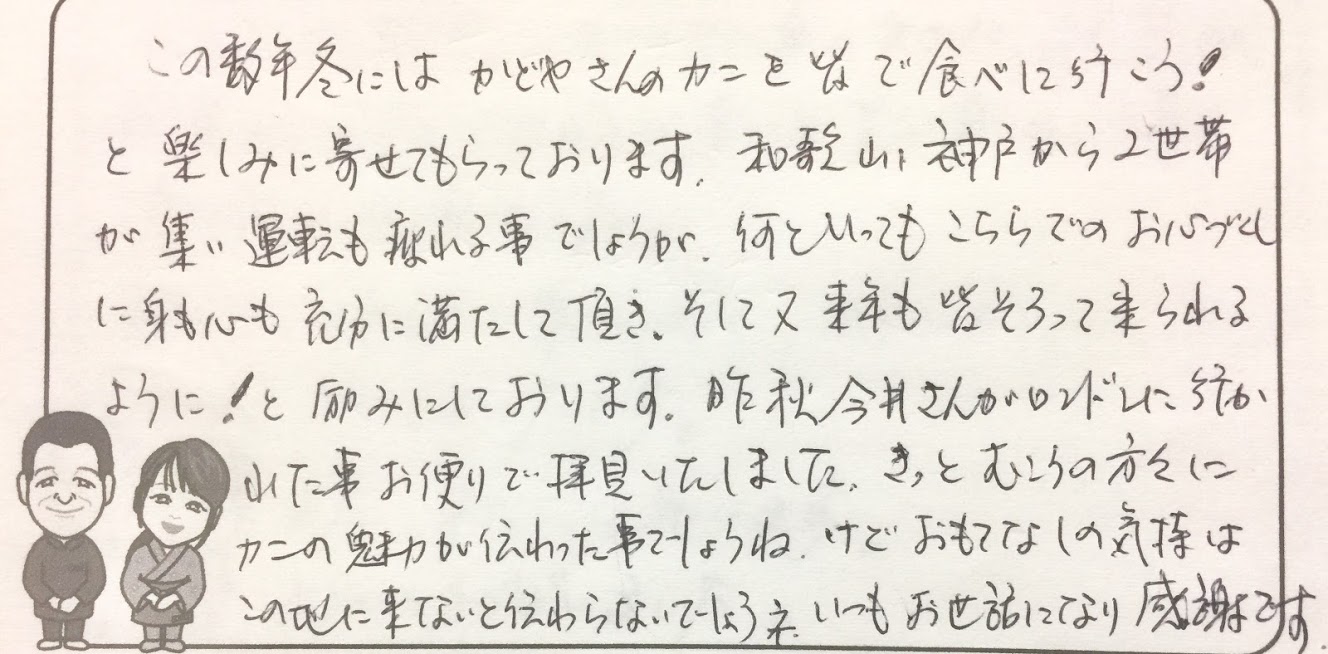 この数年冬には かどやさんのカニを皆で食べに行こう!
と楽しみに寄せてもらっております。和歌山、神戸から2世帯
が集い運転も疲れる事でしょうが、何といってもこちらでのお心づくし
に身も心も充分に満たして頂き、そして又来年も皆そろって来られる
ように!と励みにしております。昨秋今井さんがロンドンに行か
れた事お便りで拝見いたしました。きっとむこうの方々に
カニの魅力が伝わった事でしょうね。けどおもてなしの気持は
この地に来ないと伝わらないでしょうネ。いつもお世話になり感謝です。